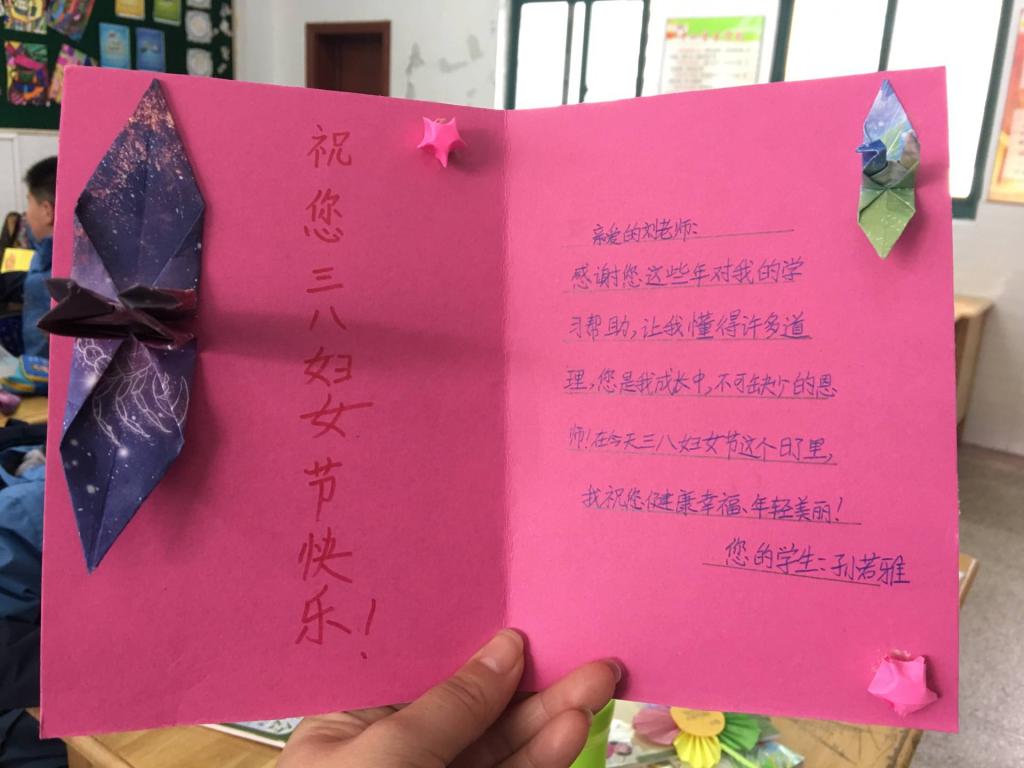 祝您三八妇女节快乐！
亲爱的刘老师：
感谢您这些年对我的学
习帮助,让我懂得许多道
理,您是我成长中,不可缺少的恩
师!在今天三八妇女节这个日子里,
我祝您健康幸福、年轻美丽!
您的学生:孙若雅